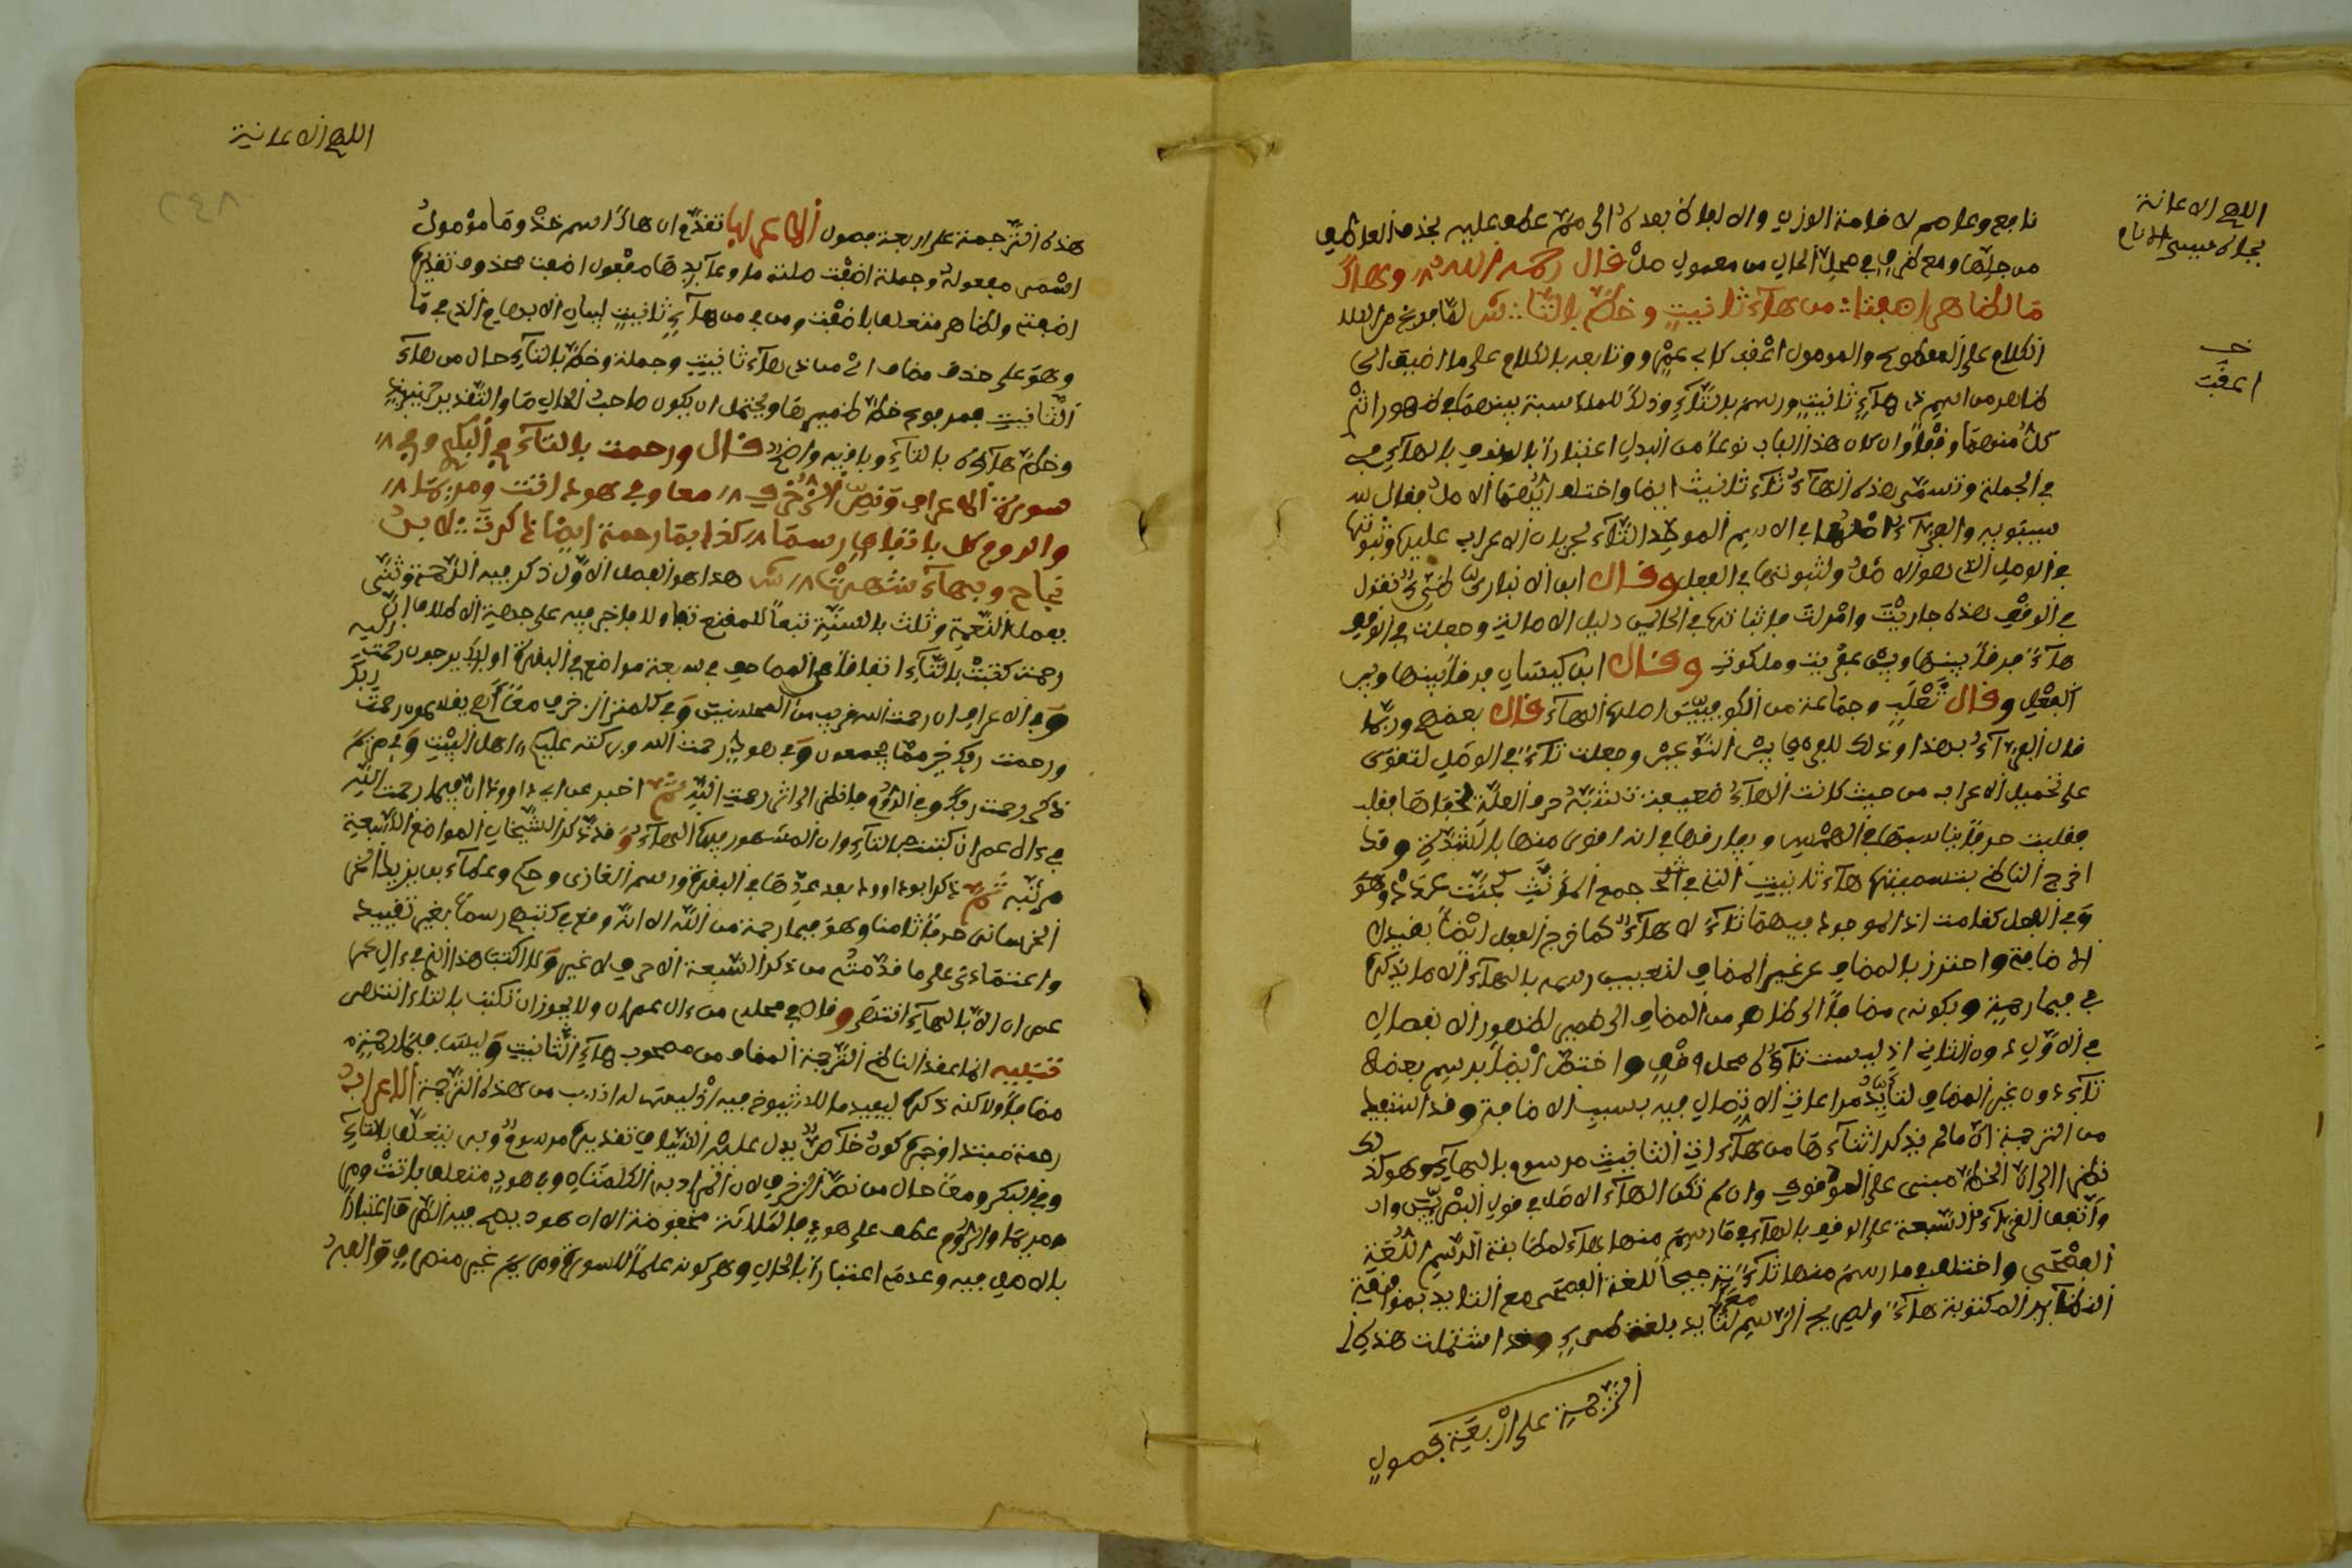 اللهم الاعانة
بجاه سيدي
خـ
اضفت
نافع وعاصم لاقامة الوزن والالفاظ بعده الى ثم عطف عليه بحذف العاطف
من جملتها ومع ظرف في محل الحال من معمول قال رحمه الله وهاك
ما لظاهر اضفتا من هاء تانيث وخط بالتا لما فرغ من
الكلام على المقطوع والموصول اعقب كابي عمرو وتابعه بالكلام على ما اضيف الى
ظاهر من اسم ذي هاء تانيث ورسم بالتاء وذلك للمناسبة بينهما في ظهور اثر
كل منهما وقفا وان كان هذا الباب نوعا من البدل اعتبارا بالوقف بالهاء
في الجملة وتسمى هذه الهاء تاء تانيث ايضا واختلف ايهما الاصل فقال
سيبويه والفراء اصلها في الاسم الموحد التاء لجريان الاعراب عليها وثبوتها
في الوصل الذي هو الاصل ولثبوتها في الفعل وقال ابن الانباري تقول
في الوقف هذه جاريت وامرات فاثباتها في الحالين دليل الاصالة وجعلت في الوقف
هاء فرقا بينها وبين عفريت وملكوت وقال ابن كيسان فرقا بينها وبين
الفعل وقال ثعلب وجماعة من الكوفيين اصلها الهاء قال بعضهم وربما
قال الفراء بهذا وذلك للفرق بين النوعين وجعلت تاء في الوصل لتقوى
على تحميل الاعراب من حيث كانت الهاء ضعيفة تشبه حرف العلة لخفائها
فقلبت حرفا يناسبها في الهمس ويفارقها في انه اقوى منها بالشدة وقد
اخرج الناظم بتسميتها هاء تانيث التي في جمع المؤنث
وفي الفعل كقامت اذ الموجود فيهما تاء لا هاء كما خرج الفعل ايضا بقيد
الاضافة واحترز بالمضاف عن غير المضاف لتعين رسمه بالهاء الا ما يذكر
في فيما رحمة وبكونه مضافا الى ظاهر من المضاف الى ضمير لظهور الانفصال
في الاول دون الثاني اذ ليست تاؤه محل وقف واختص ايضا برسم بعضه
تاء دون غير المضاف لتايد مراعات الاتصال فيه بسبب الاضافة وقد استفيد
من الترجمة ان ما لم يذكر اثناءها من هاءات التانيث مرسوم بالهاء وهو كذلك
نظرا الى ان الخط مبني على الوقوف وان لم تكن الهاء الاصل في قول البصريين
واتفق القراء السبعة على الوقف بالهاء فيما رسم منها هاء لمطابقة الرسم اللغة
الفصحى واختلفوا فيما رسم منها تاء ترجيحا للغة الفصحى مع التاييد بموافقة
النظاير المكتوبة هاء ولصريح الرسم لتايده بلغة طيء وقد اشتملت هذه
الترجمة على اربعة فصول
اللهم الاعانية
٢٤٨
هذه الترجمة على اربعة فصول الاعراب تقدم ان هاك اسم خذ وما موصول
اسمي مفعوله وجملة اضفت صلة ما وعائدها مفعول اضفت محذوف تقديره
اضفته ولظاهر متعلق باضفت ومن في من هاء تانيث لبيان الابهام الذي في ما
وهو على حذف مضاف اي من ذي هاء تانيث وجملة وخط بالتاء حال من هاء
التانيث فمرفوع خط ضميرها ويحتمل ان يكون صاحب الحال ما والتقدير حينئذ
وخط هاؤه بالتاء وباقيه واضح قال ورحمت بالتاء في البكر وفي
سورة الاعراف ونص الزخرف معا وفي هود اتت ومريما
والروم كل باتفاق رسما كذا بما رحمة ايضا ذكرت لابن
نجاح وبهاء شهرت هذا هو الفصل الاول ذكر فيه الرحمة وثنى
بفصل النعمة وثلث بالسنة تبعا للمقنع
رحمت كتبت بالتاء اتفاقا في المصاحف في سبعة مواضع في البقرة اولئك يرجون رحمت الله
وفي الاعراف ان رحمت الله قريب من المحسنين وفي كلمتي الزخرف معا اهم يقسمون رحمت ربك
ورحمت ربك خير مما يجمعون وفي هود رحمت الله وبركاته عليكم اهل البيت وفي مريم
ذكر رحمت ربك وفي الروم فانظر الى اثر رحمت الله ثم اخبر عن ابي داوود ان فبما رحمت الله
في ءال عمران كتبت بالتاء وان المشهور فيها الهاء وقد ذكر الشيخان المواضع السبعة
مرتبة ثم ذكر ابو داوود بعد عدها في البقرة ورسم الغازي وحكم وعطاء بن يزيد
الخراساني حرفا ثامنا وهو فبما رحمة من الله الا انه وقع في كتبهم رسما بغير تقييد
واعتمادي على ما قدمته من ذكر السبعة الاحرف لا غير ولا اكتب هذا الذي في ءال
عمران الا بالهاء انتهى وقال في محله من ءال عمران ولا يجوز ان تكتب بالتاء انتهى
تنبيه انما عقد الناظم الترجمة للمضاف من مصحوب هاء التانيث وليس فبما رحمة
مضافا ولاكنه ذكره ليفيد ما للشيوخ فيه اذ ليس له انسب من هذه الترجمة الاعراب
رحمة مبتدا وخبره كون خاص يدل عليه السياق تقديره مرسوم وبه يتعلق بالتاء
وفي البكر ومعا حال من نص الزخرف لان المراد به الكلمتان وفي هود متعلق باتت
مريما والروم عطف على هود فالثلاثة مخفوضة الا ان هود يصح فيه الصرف اعتبارا
بالاصل فيه وعدمه اعتبارا بالحال وهو كونه علما للسورة ومريم غير منصرف والعبد